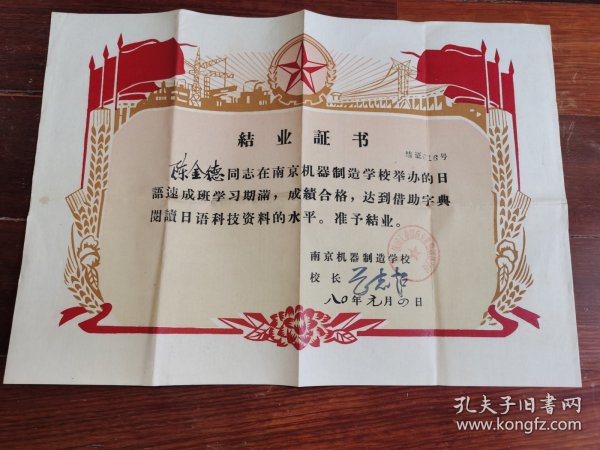 結业証书
结证 16号
陈金德同志在南京机器制造学校举办的日
語速成班学习期满，成績合格，达到借助字典
閱讀日语科技资料的水平。准予結业。
南京机器制造学校
校长
八〇年元月四日
孔夫子旧书网
www.kongfz.com